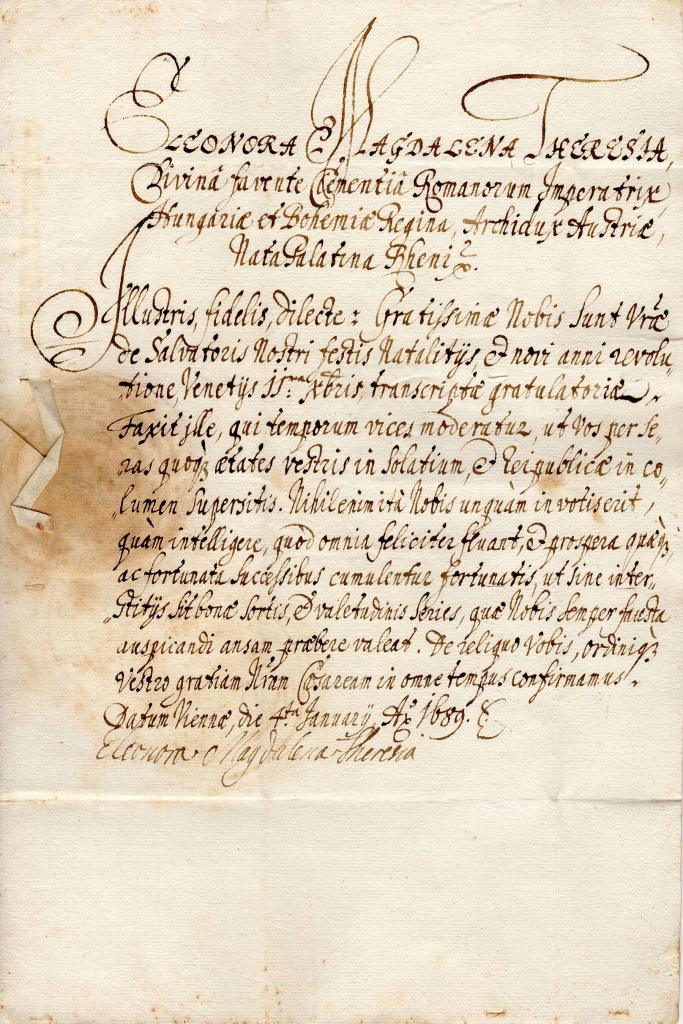 ELEONORA MAGDALENA THERESIA,
Divinâ favente Clementiâ Romanorum Imperatrix,
Hungariæ et Bohemiæ Regina, Archidux Austriæ,
Nata Palatina Rheni &c.
Illustris, fidelis, dilecte: Gratissimæ Nobis sunt Vræ
de Salvatoris Nostri festis Natalitijs, & novi anni revolu-
tione, Venetijs 11ma Xbris, transcriptæ gratulatoriæ.
Faxit jlle, qui temporum vices moderatur, ut Vos per se-
ras quoqz ætates vestris in solatium, & Reipublicæ in co-
lumen supersitis. Nihil enim ità Nobis unquàm in votis erit,
quàm intelligere, quod omnia feliciter fluant, & prospera quæqz,
ac fortunata successibus cumulentur fortunatis, ut sine inter-
stitijs sit bonæ sortis, & valetudinis series, quæ Nobis semper fausta
auspicandi ansam præbere valeat. De reliquo Vobis, ordiniqz
Vestro gratiam Nram Cæsaream in omne tempus confirmamus.
Datum Viennæ, die 4ta January, Ao 1689.
Eleonora Magdalena Theresia